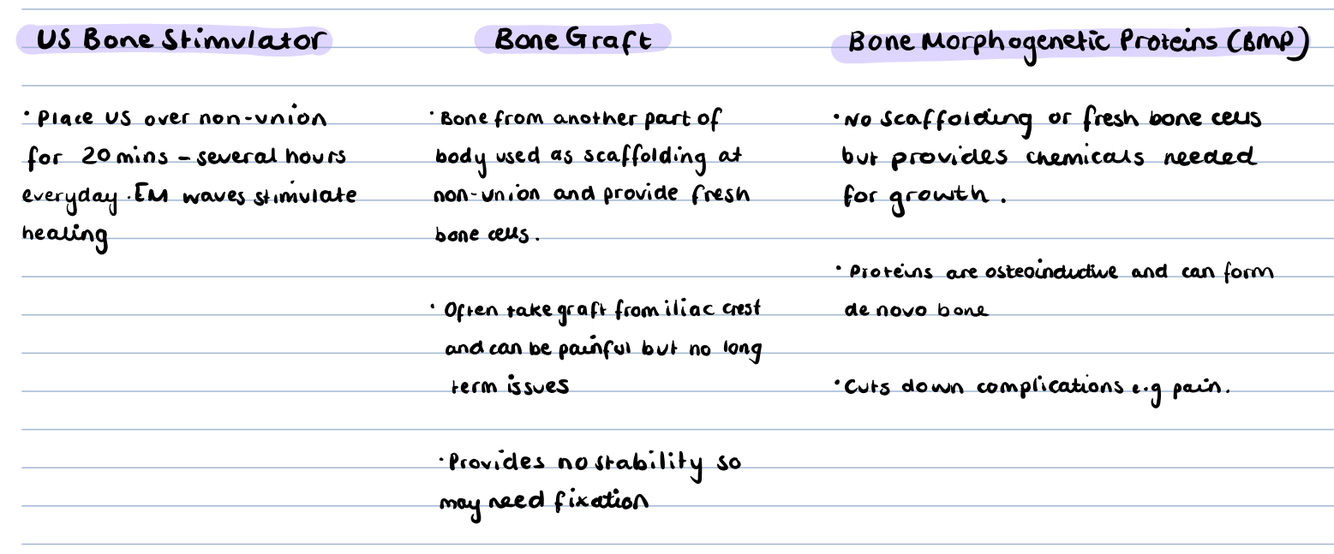 US Bone Stimulator
• Place US over non-union
for 20 mins - several hours
everyday. EM waves stimulate
healing
Bone Graft
• Bone from another part of
body used as scaffolding at
non-union and provide fresh
bone cells.
• Often take graft from iliac crest
and can be painful but no long
term issues
• Provides no stability so
may need fixation
Bone Morphogenetic Proteins (BMP)
• No scaffolding or fresh bone cells
but provides chemicals needed
for growth.
• Proteins are osteoinductive and can form
de novo bone
• Cuts down complications e.g pain.